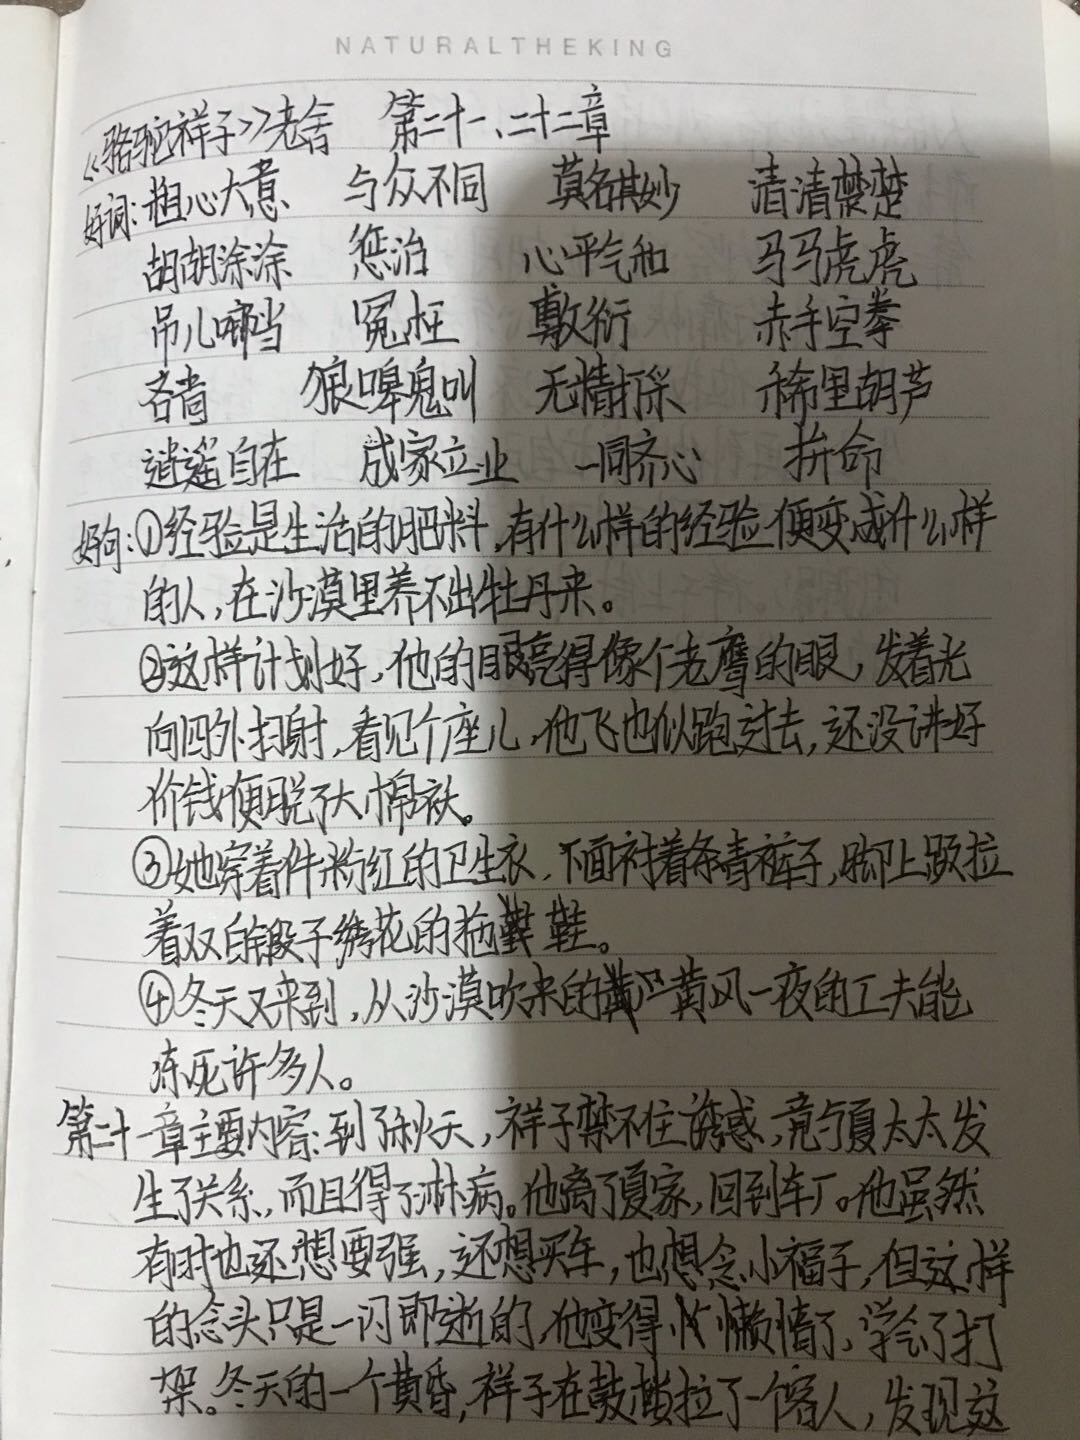 NATURALTHEKING
《骆驼祥子》老舍 第二十一、二十二章
好词:粗心大意 与众不同 莫名其妙 清清楚楚
胡胡涂涂 惩治 心平气和 马马虎虎
吊儿啷当 冤枉 敷衍 赤手空拳
吝啬 狼嗥鬼叫 无精打采 稀里胡芦
逍遥自在 成家立业 一同齐心 拚命
好句:①经验是生活的肥料,有什么样的经验便变成什么样
的人,在沙漠里养不出牡丹来。
②这样计划好,他的眼亮得像个老鹰的眼,发着光
向四外扫射,看见个座儿,他飞也似跑过去,还没讲好
价钱便脱了大棉袄。
③她穿着件粉红的卫生衣,下面衬着条青裤子,脚上趿拉
着双白缎子绣花的拖鞋。
④冬天又来到,从沙漠吹来的黄风一夜的工夫能
冻死许多人。
第二十一章主要内容:到了秋天,祥子禁不住诱惑,竟与夏太太发
生了关系,而且得了淋病。他离了夏家,回到车厂。他虽然
有时也还想要强,还想买车,也想念小福子,但这样
的念头只是一闪即逝的,他变得懒惰了,学会了打
架。冬天的一个黄昏,祥子在鼓楼拉了一个客人,发现这